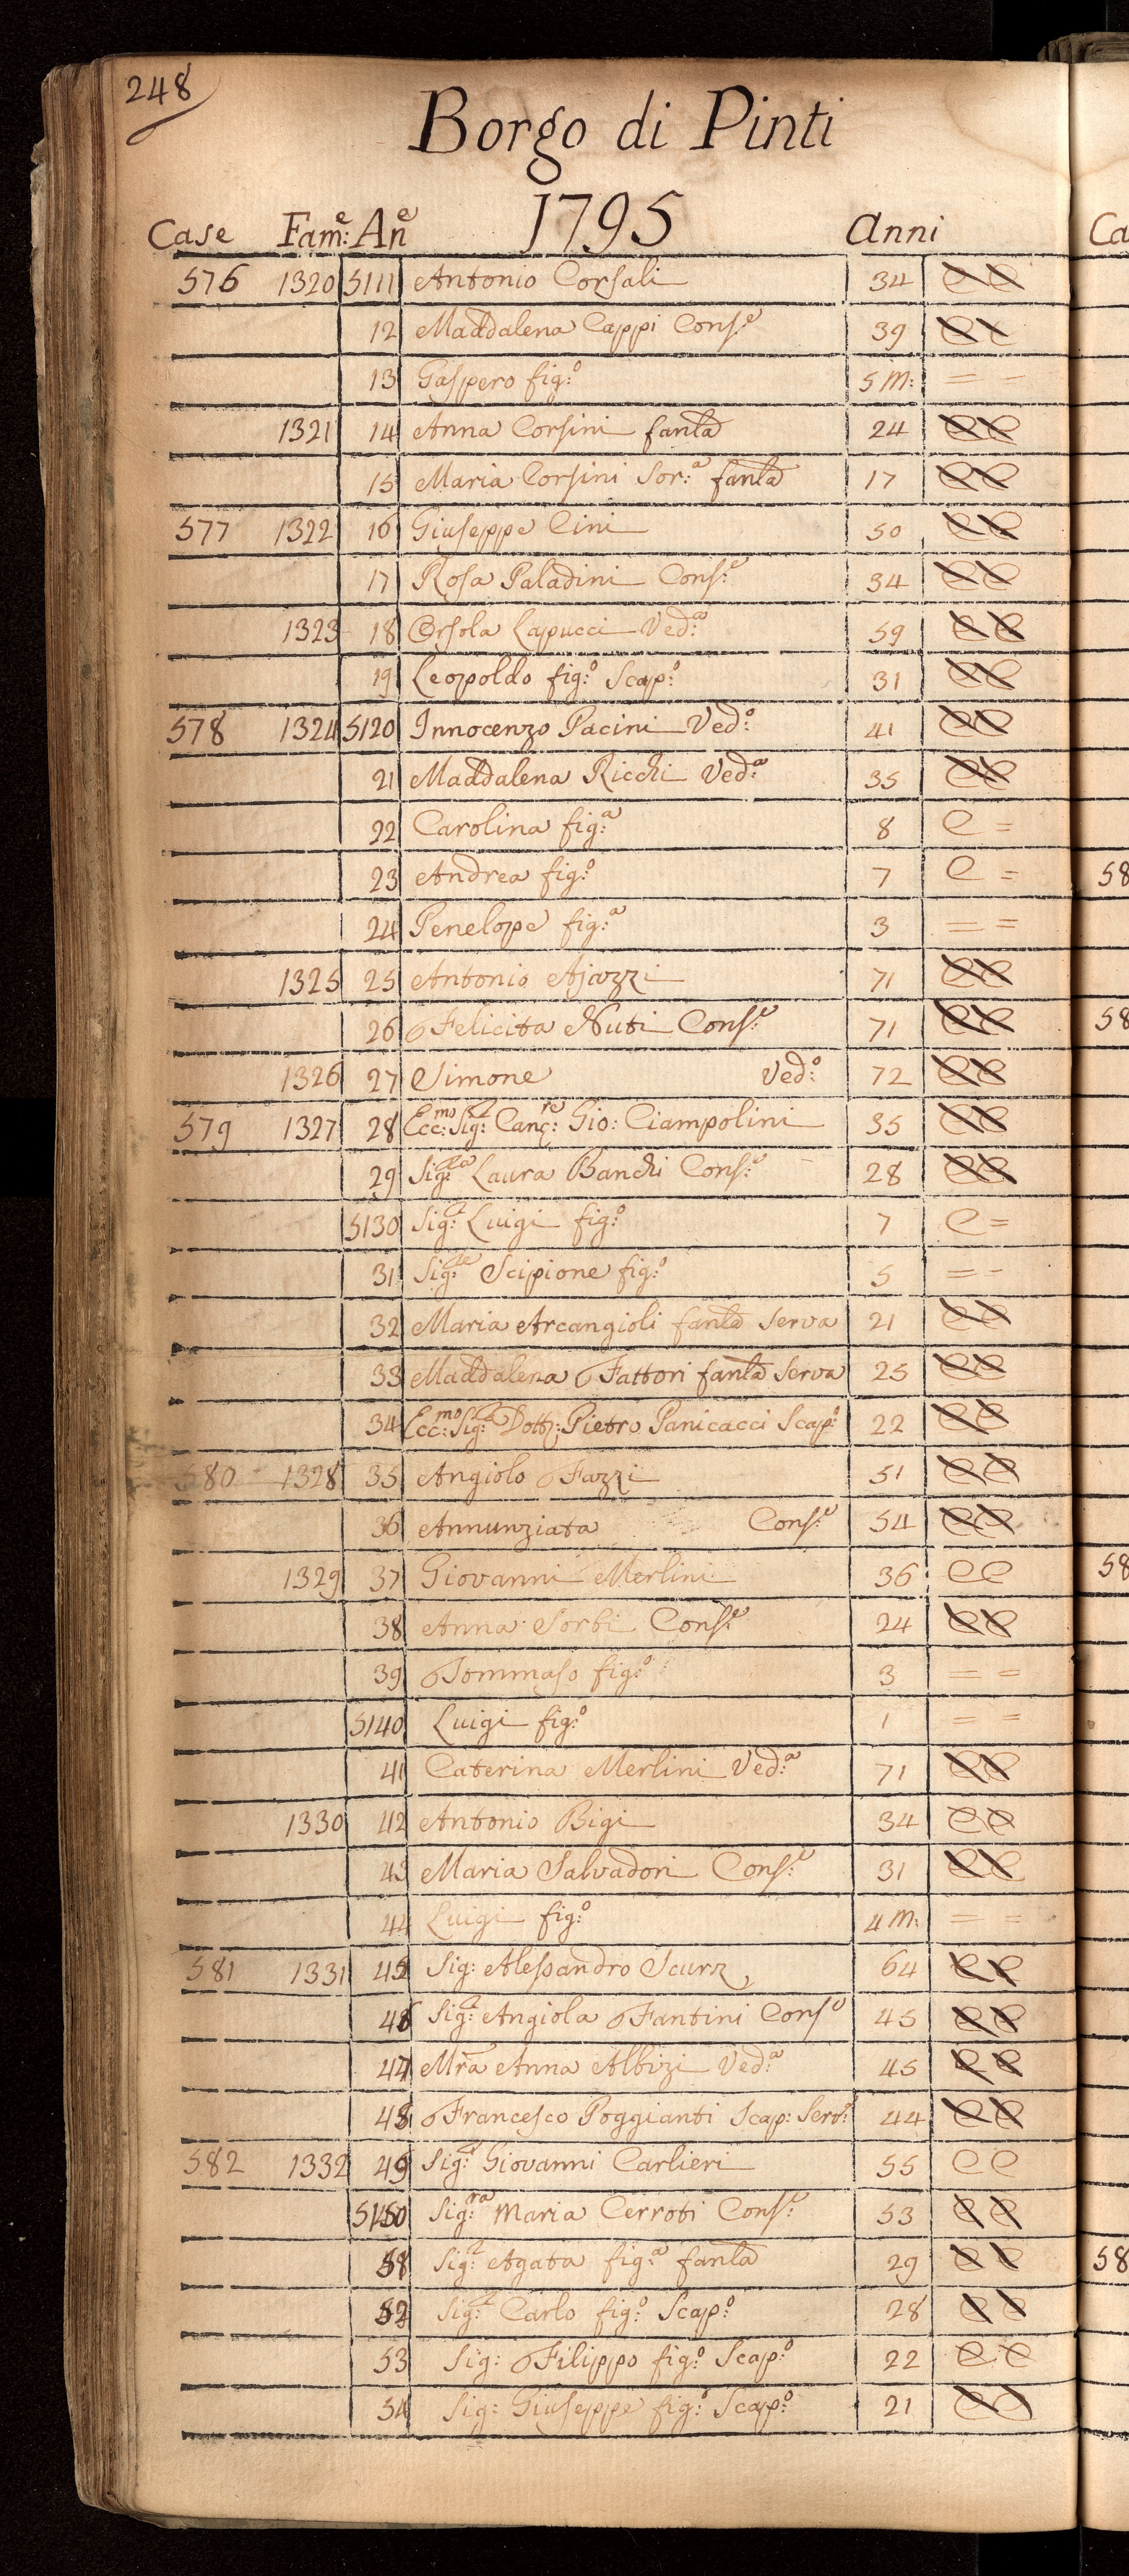 248
Borgo di Pinti
1795
Case Fam:e An:e Anni
576 1320 5111 Antonio Corsali 34 C C
12 Maddalena Cappi Cons:e 39 C C
13 Gaspero fig:o 5 m: = =
1321 14 Anna Corsini fanla 24 C C
15 Maria Corsini Sor:a fanla 17 C C
577 1322 16 Giuseppe Cini 50 C C
17 Rosa Paladini Cons:e 34 C C
1323 18 Orsola Lapucci Ved:a 59 C C
19 Leopoldo fig:o Scap:o 31 C C
578 1324 5120 Innocenzo Pacini Ved:o 41 C C
21 Maddalena Ricchi Ved:a 35 C C
22 Carolina fig:a 8 C =
23 Andrea fig:o 7 C =
24 Penelope fig:a 3 = =
1325 25 Antonio Ajazzi 71 C C
26 Felicita Nuti Cons:e 71 C C
1326 27 Simone Ved:o 72 C C
579 1327 28 Ecc:mo Sig:r Canc:re Gio: Ciampolini 35 C C
29 Sig:ra Laura Banchi Cons:e 28 C C
5130 Sig:r Luigi fig:o 7 C =
31 Sig:re Scipione fig:o 5 = =
32 Maria Arcangioli fanla Serva 21 C C
33 Maddalena Fattori fanla Serva 25 C C
34 Ecc:mo Sig:r Dott: Pietro Panicacci Scap:o 22 C C
580 1328 35 Angiolo Fazzi 51 C C
36 Annunziata Cons:e 54 C C
1329 37 Giovanni Merlini 36 C C
38 Anna Sorbi Cons:e 24 C C
39 Tommaso fig:o 3 = =
5140 Luigi fig:o 1 = =
41 Caterina Merlini Ved:a 71 C C
1330 42 Antonio Bigi 34 C C
43 Maria Salvadori Cons:e 31 C C
44 Luigi fig:o 4 m: = =
581 1331 45 Sig: Alessandro Scurz 64 C C
46 Sig:a Angiola Fantini Cons:e 45 C C
47 Mra Anna Albizi Ved:a 45 C C
48 Francesco Poggianti Scap: Serv:e 44 C C
582 1332 49 Sig:r Giovanni Carlieri 55 C C
5150 Sig:ra Maria Cerroti Cons:e 53 C C
51 Sig:a Agata fig:a fanla 29 C C
52 Sig:r Carlo fig:o Scap:o 28 C C
53 Sig: Filippo fig:o Scap:o 22 C C
54 Sig: Giuseppe fig:o Scap:o 21 C C
Ca
58
58
58
58